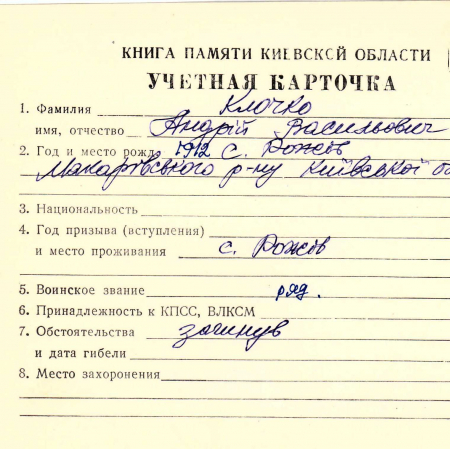 КНИГА ПАМЯТИ КИЕВСКОЙ ОБЛАСТИ
УЧЕТНАЯ КАРТОЧКА
1. Фамилия Клочко
имя, отчество Андрій Васильович
2. Год и место рожд. 1912 с. Рожів
Макарівського р-ну Київської об
3. Национальность
4. Год призыва (вступления)
и место проживания с. Рожів
5. Воинское звание ряд.
6. Принадлежность к КПСС, ВЛКСМ
7. Обстоятельства загинув
и дата гибели
8. Место захоронения